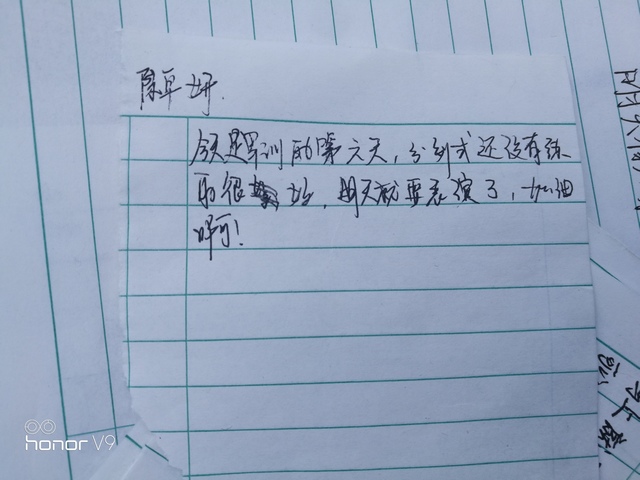 陈卓妍
今天是军训的第六天，分列式还没有练
的很好，明天就要表演了，加油
啊！
honor V9